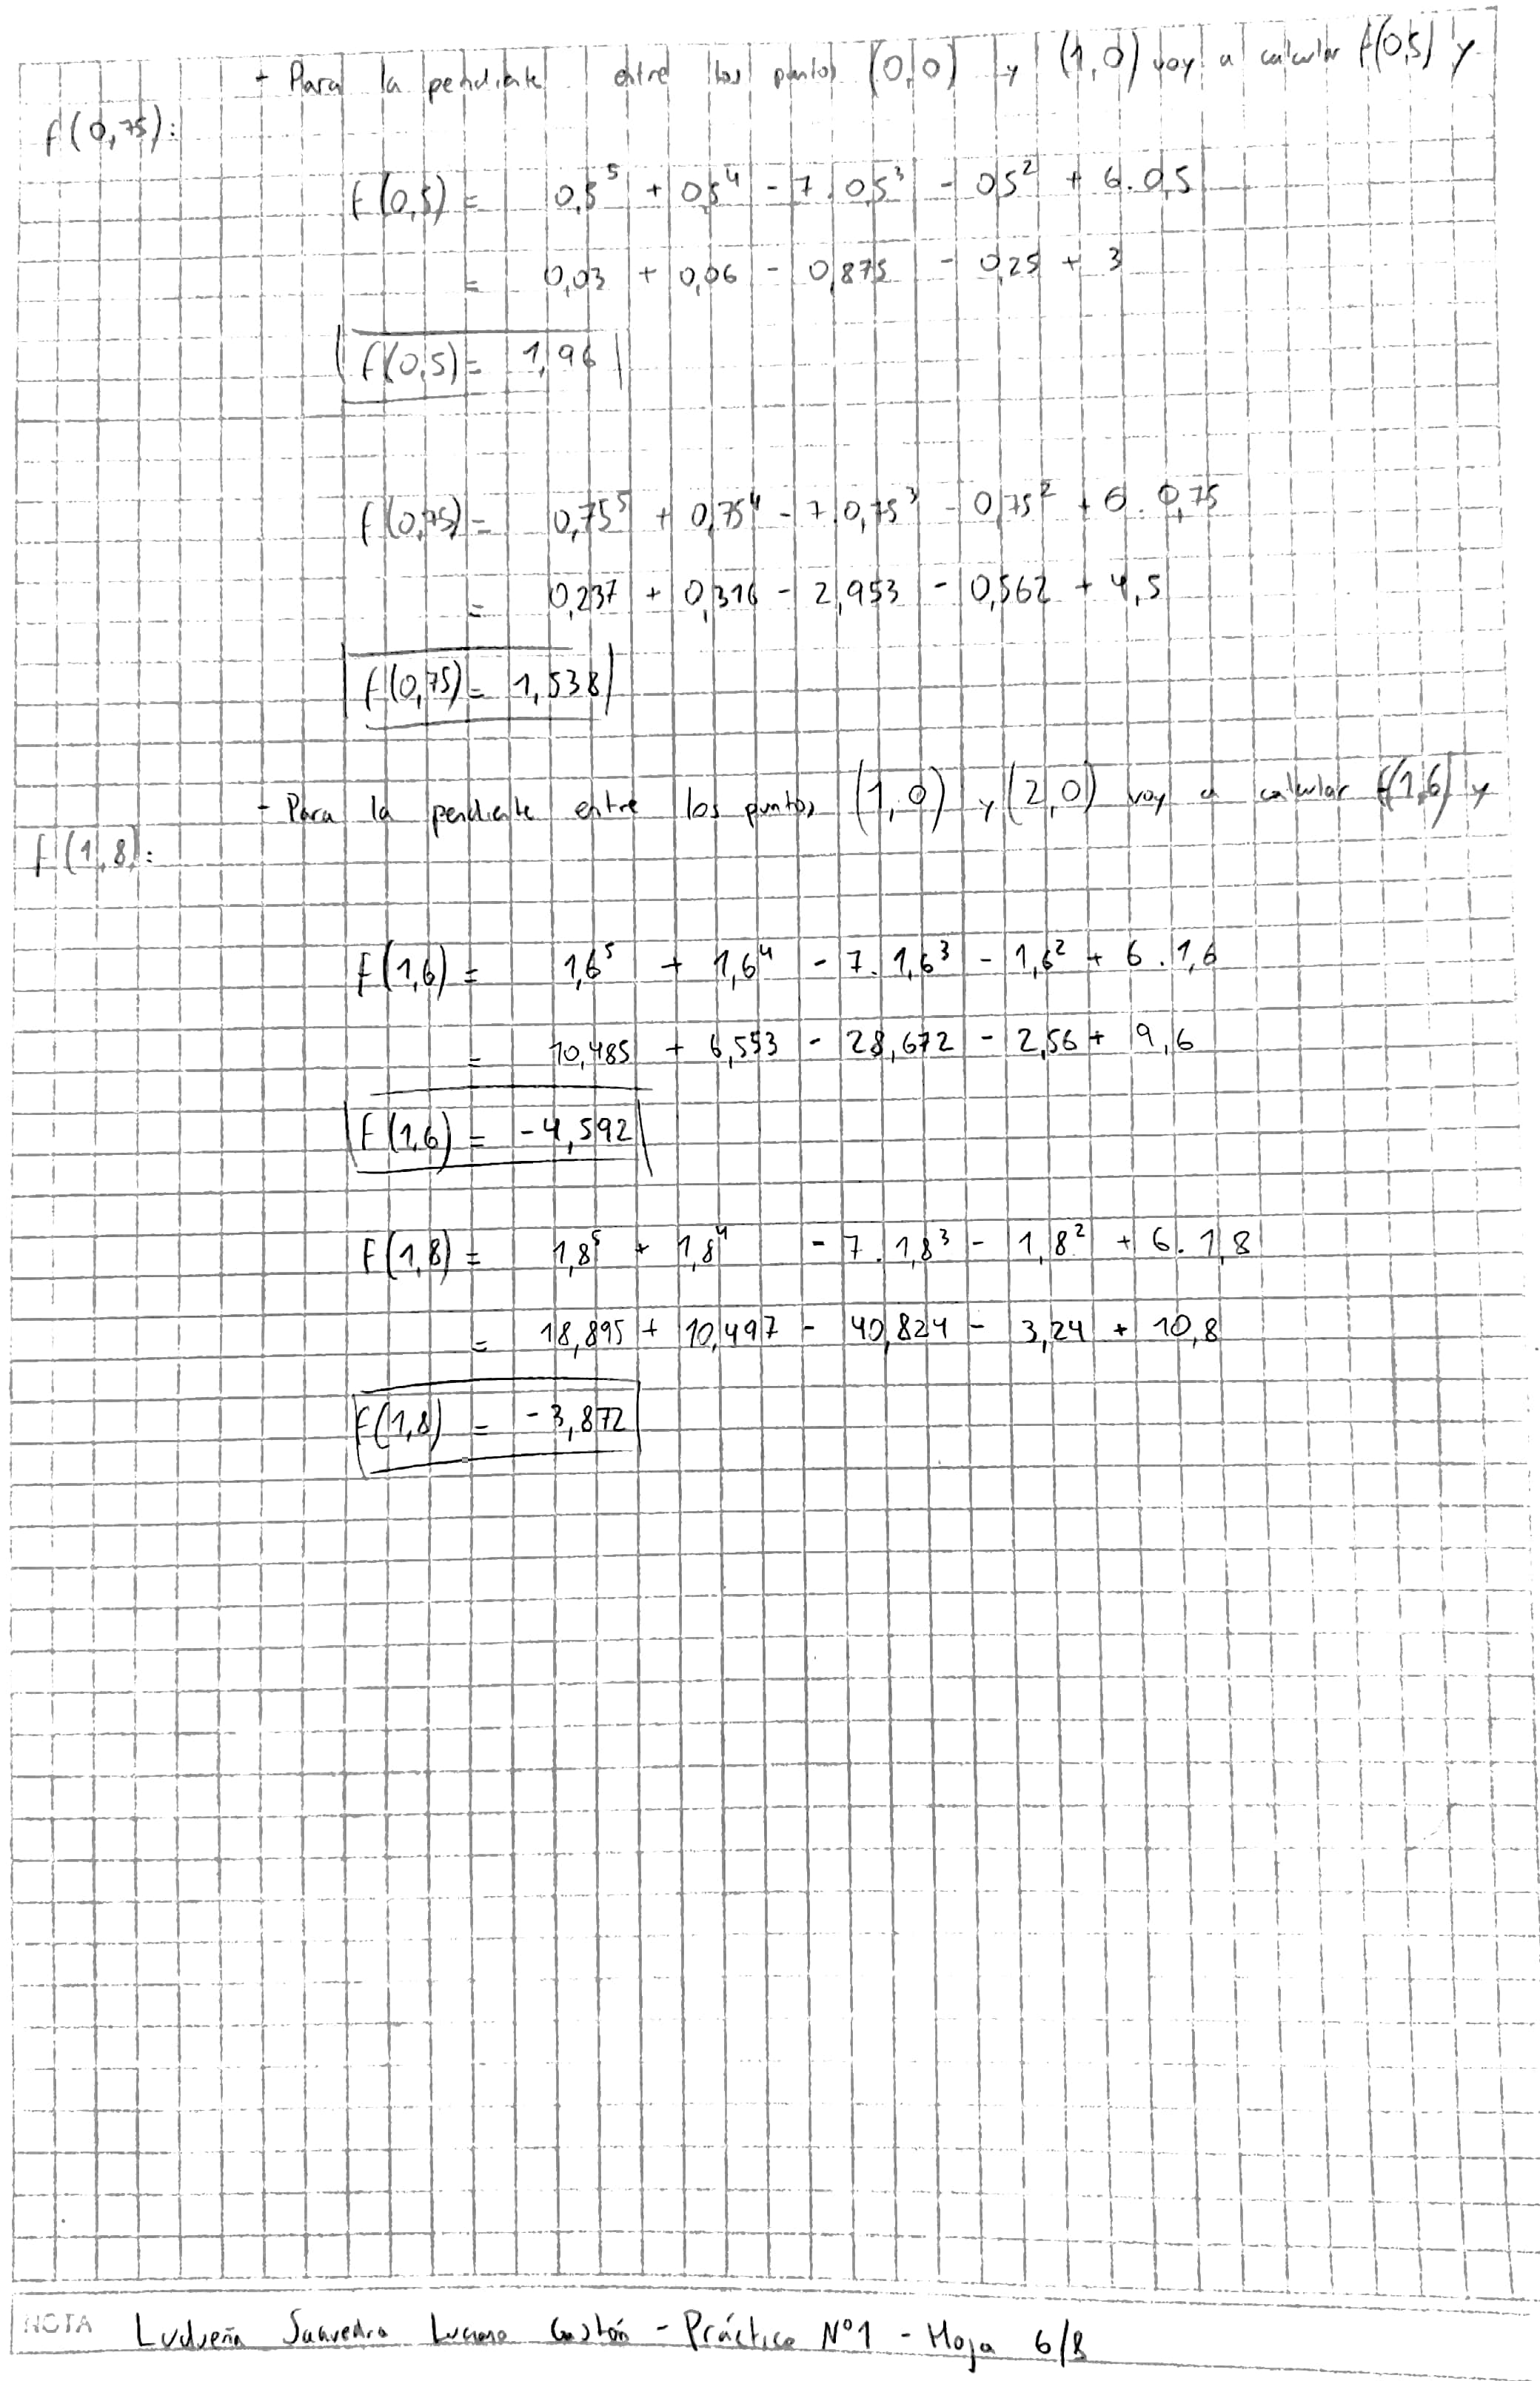 - Para la pendiente entre los puntos (0,0) y (1,0) voy a calcular f(0,5) y
f(0,75):
f(0,5) = 0,5⁵ + 0,5⁴ - 7. 0,5³ - 0,5² + 6. 0,5
= 0,03 + 0,06 - 0,875 - 0,25 + 3
f(0,5) = 1,96
f(0,75) = 0,75⁵ + 0,75⁴ - 7. 0,75³ - 0,75² + 6. 0,75
= 0,237 + 0,316 - 2,953 - 0,562 + 4,5
f(0,75) = 1,538
- Para la pendiente entre los puntos (1,0) y (2,0) voy a calcular f(1,6) y
f(1,8):
F(1,6) = 1,6⁵ + 1,6⁴ - 7. 1,6³ - 1,6² + 6. 1,6
= 10,485 + 6,553 - 28,672 - 2,56 + 9,6
F(1,6) = -4,592
F(1,8) = 1,8⁵ + 1,8⁴ - 7. 1,8³ - 1,8² + 6. 1,8
= 18,895 + 10,497 - 40,824 - 3,24 + 10,8
F(1,8) = -3,872
NOTA Ludueña Saavedra Luciano Gastón - Práctico Nº1 - Hoja 6/8